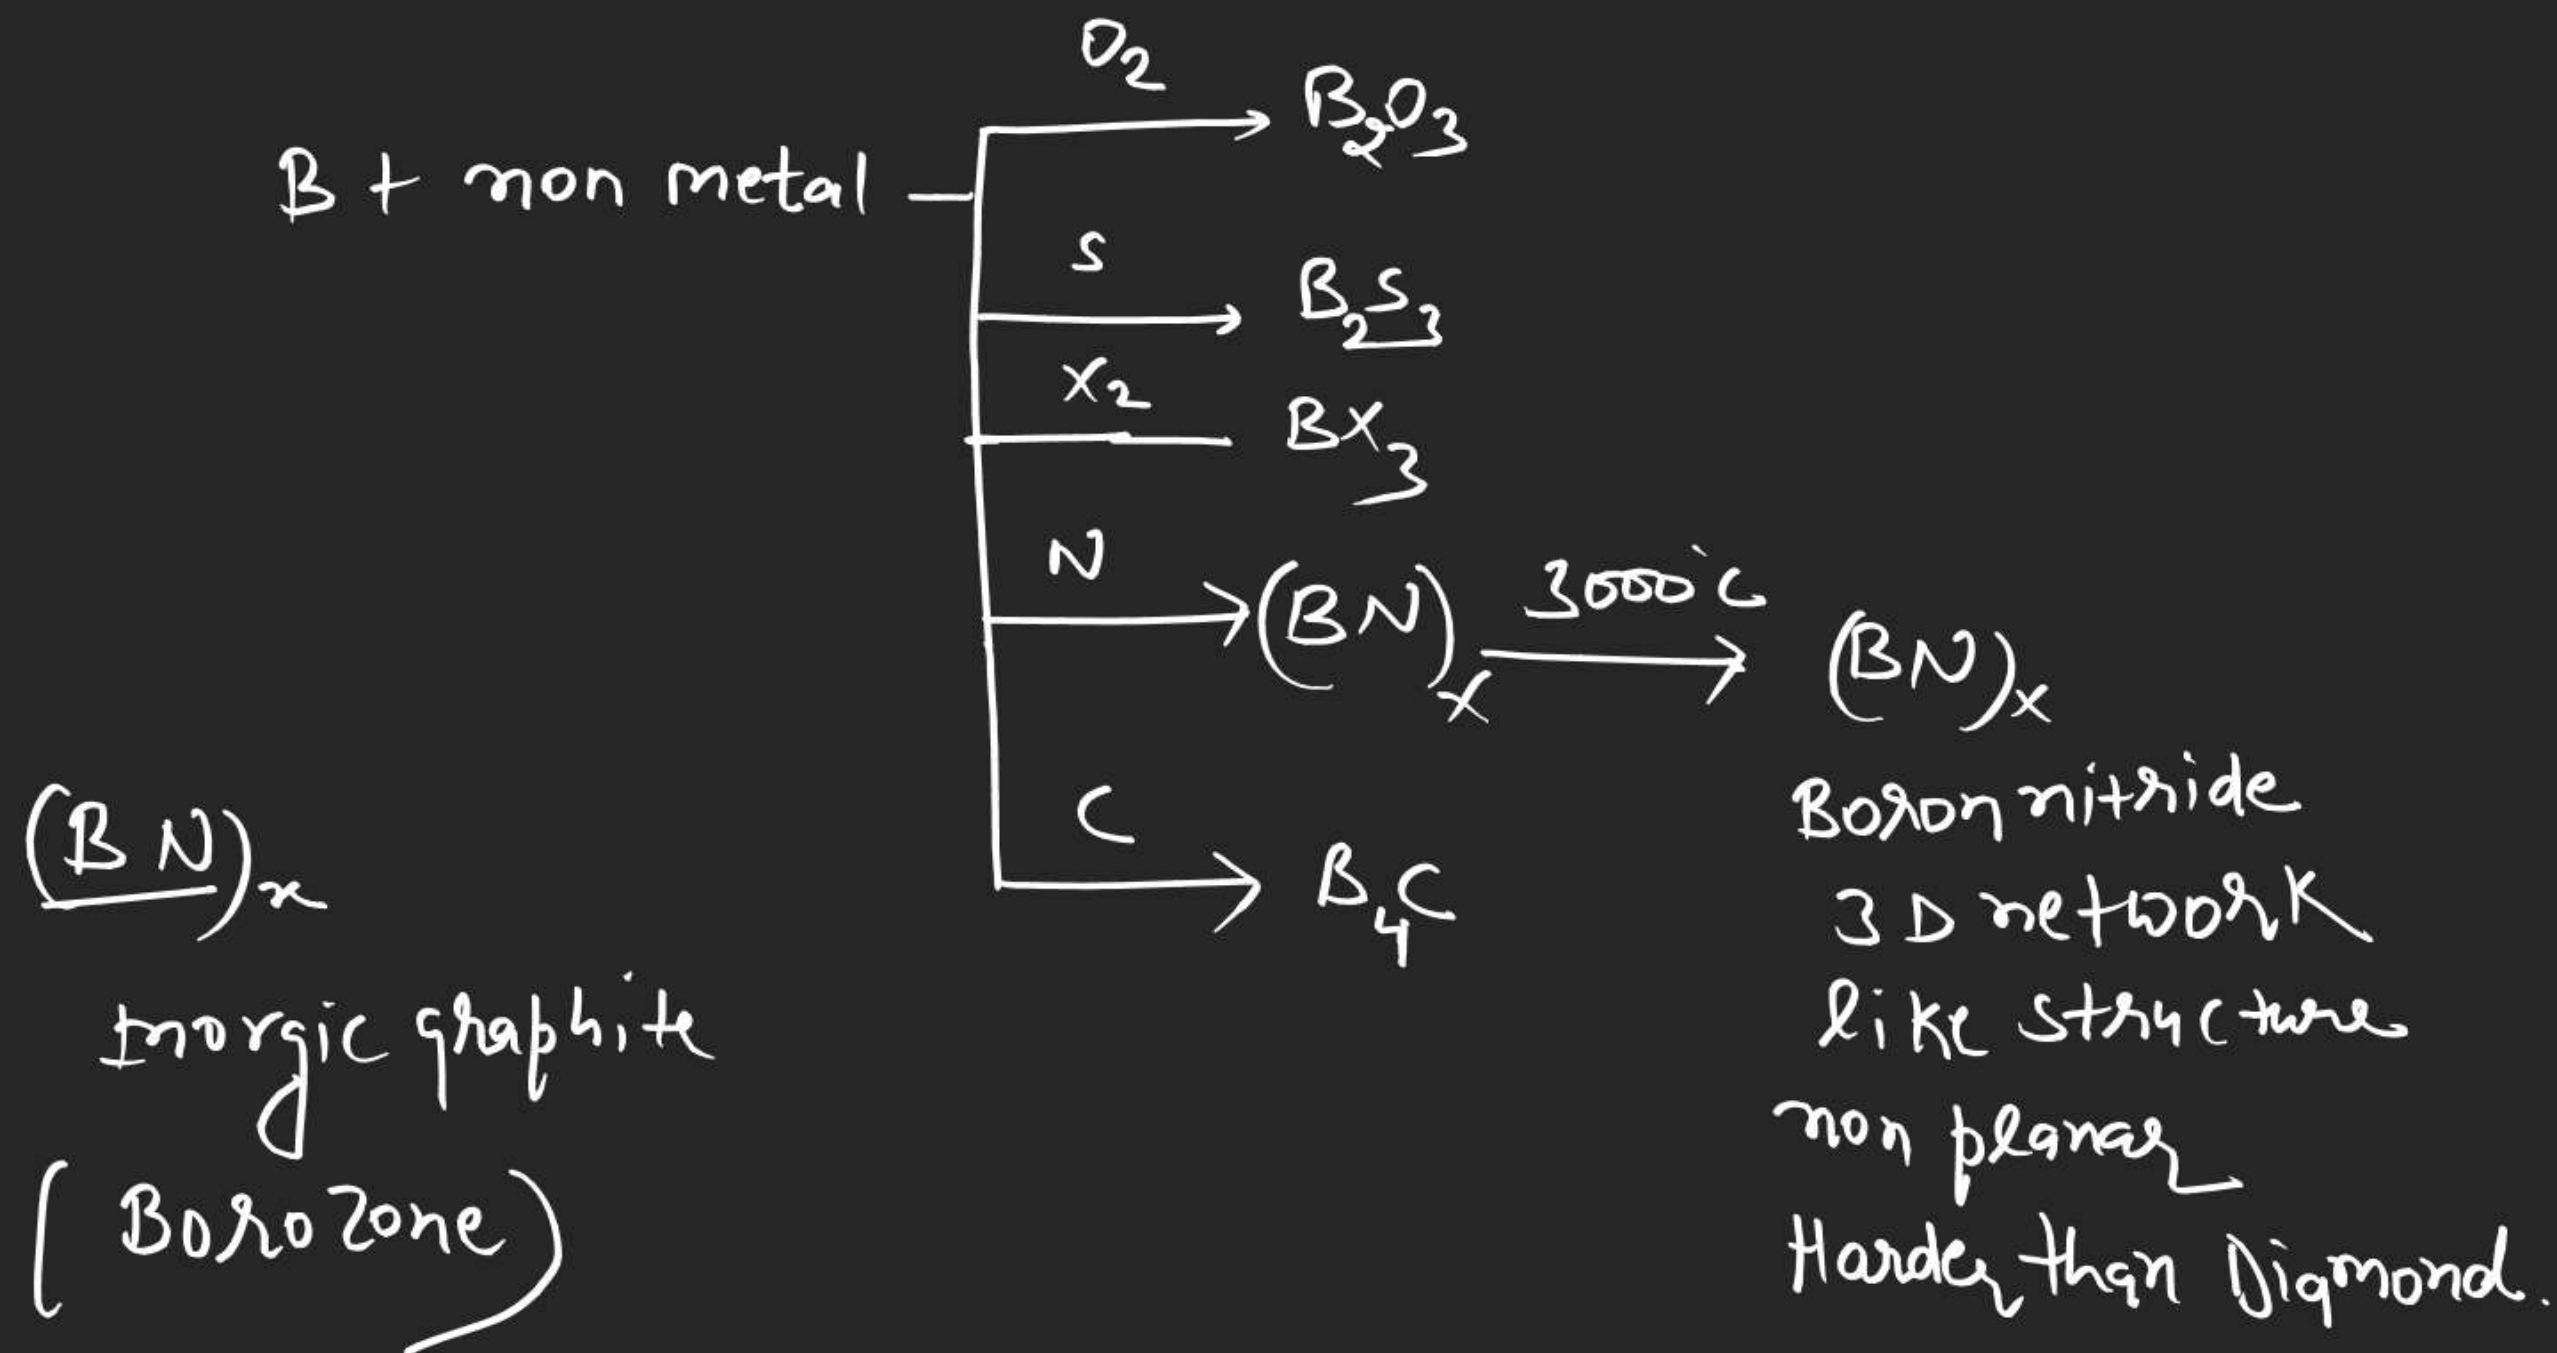 O₂
B₂O₃
B + non metal
S
B₂S₃
X₂
BX₃
N
(BN)ₓ 3000°C (BN)ₓ
C
B₄C
Boron nitride
3D network
like structure
non planar
Harder than Diamond.
(BN)ₓ
Inorgic graphite
(Borozone)